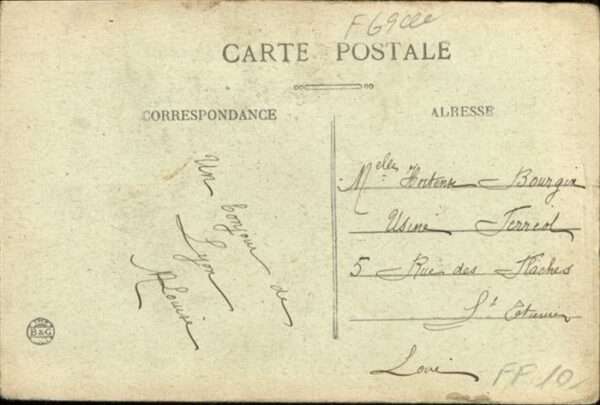 F69cce
CARTE POSTALE
CORRESPONDANCE
ADRESSE
Un bonjour de
Lyon
M Louise
Melles Hortense Bourgin
Usine Terreol
5 Rue des Flaches
St Etienne
Loire
B&G
FF 10